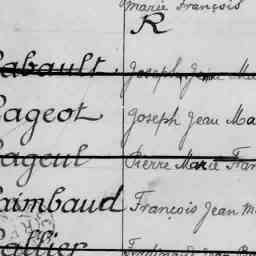 Marie François
R
Rabault Joseph Jean Ma
Rageot Joseph Jean Ma
Rageul Pierre Marie Fran
Raimbaud François Jean M
Rallier Ferdinand Jean